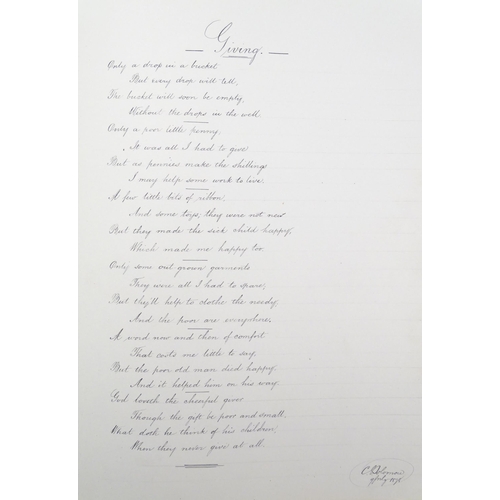 Giving.
Only a drop in a bucket
But every drop will tell,
The bucket will soon be empty,
Without the drops in the well
Only a poor little penny,
It was all I had to give
But as pennies make the shillings
I may help some work to live.
A few little bits of ribbon,
And some toys, they were not new
But they made the sick child happy,
Which made me happy too.
Only some out grown garments
They were all I had to spare,
But they'll help to clothe the needy,
And the poor are everywhere.
A word now and then of comfort
That costs me little to say,
But the poor old man died happy,
And it helped him on his way.
God loveth the cheerful giver
Though the gift be poor and small
What doth he think of his children,
When they never give at all.
July